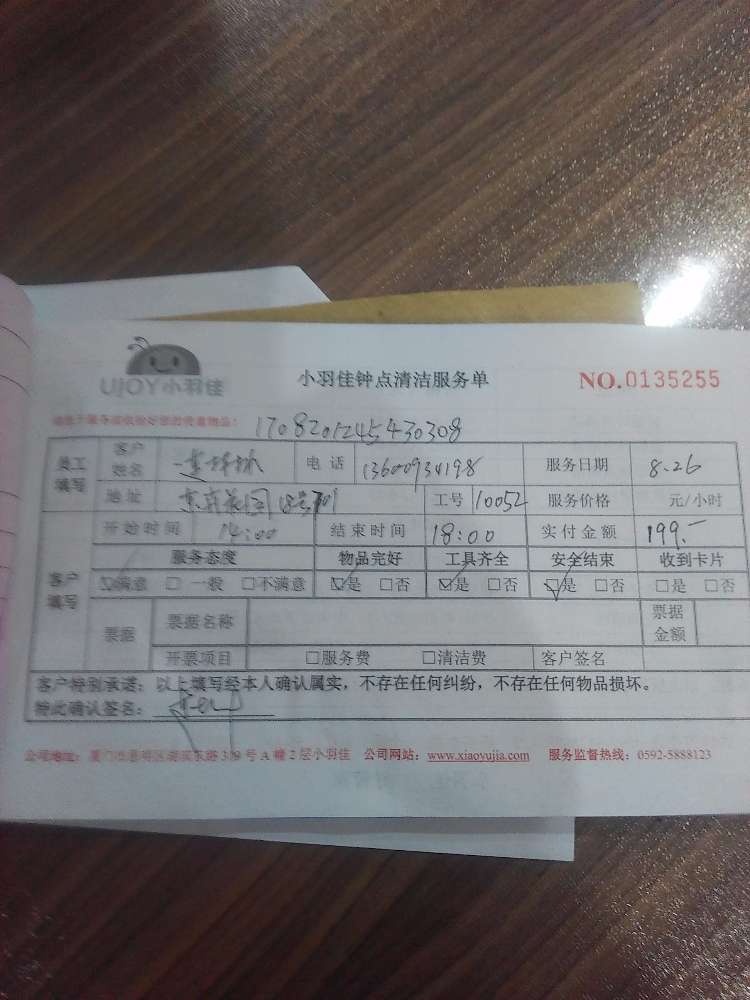 UJOY小羽佳
小羽佳钟点清洁服务单
NO.0135255
请您于服务前收验好您的贵重物品!
170820124543 0308
员工填写 客户姓名 连 电话 13600934198 服务日期 8.26
地址 东 花园 18号 工号 10052 服务价格 元/小时
客户填写 开始时间 14:00 结束时间 18:00 实付金额 199.-
服务态度 物品完好 工具齐全 安全结束 收到卡片
☑满意 □一般 □不满意 ☑是 □否 ☑是 □否 ☑是 □否 □是 □否
票据 票据名称 票据金额
开票项目 □服务费 □清洁费 客户签名
客户特别承诺:以上填写经本人确认属实,不存在任何纠纷,不存在任何物品损坏。
特此确认签名:
公司地址:厦门市思明区湖滨东路319号A幢2层小羽佳 公司网站:www.xiaoyujia.com 服务监督热线:0592-5888123